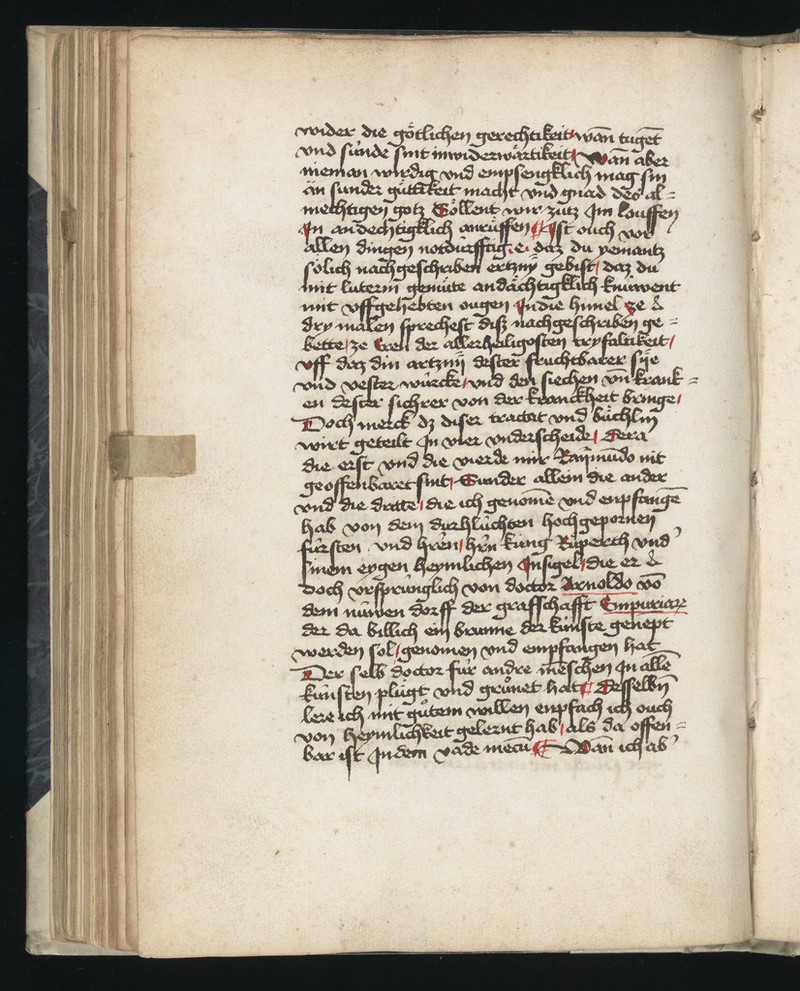 wider die götlichen gerechtikeit / wan̄ tuget̄
vnd sünde sint inwiderwärtikeit / Wan̄ aber
nieman wirdig vnd empfengklich mag sin
än sunder güttikeit macht vnd gnad des al=
mechtigen gotz Söllent wir zůtz Im louffen
In andechtigklich anrüffen ¶ Ist ouch vor
allen dingen notdürfftig. e. daz du yemantz
sölich nachgeschriben ertzny gebist / daz du
mit luterm gemüte andächtigklich knüwent
mit vffgehebten ougen In die himel ze
dry malen sprechest diß nachgeschriben ge=
bette / ze Eren der allerheiligosten tryfaltikeit /
vff daz din artznij dester fruchtbarer sije
vnd vester würcke / vnd den siechen vn̄ krank=
en dester sichrer von der kranckheit bringe /
Doch merck dz diser tractat vnd büchlin
wirt geteilt In vier vnderscheide / Dera
die erst vnd die vierde mir Raÿmūdo nit
geoffenbaret sint / Sunder allein die ander
vnd die dritte / die ich genomē vnd enpfangē
hab von dem durhlüchten hochgepornen
fürsten vnd hr̄en / hr̄n küng Rüperch vnd
sinem eygen heymlichen Insigel / die er
doch vrsprünglich von doctor Arnoldo vō
dem nüwen dorff der graffschafft Empuriaz
der da billich ein brunne der künste genept
werden sol / genomen vnd empfangen hat
Der selb doctor für andre mēschen In allē
künsten plügt vnd grůnet hat ¶ Desselbn̄
lere ich mit gůtem willen enpfach ich ouch
von heymlichkeit gelernt hab / als da offen=
bar ist In dem vade mecū ¶ Wan̄ ich ab